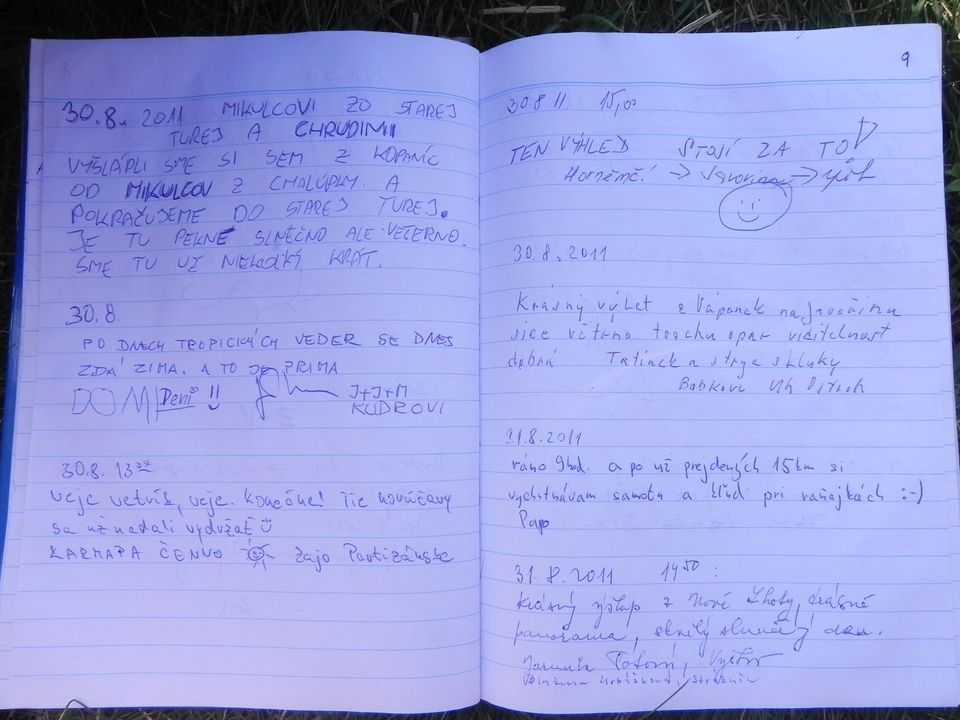 30.8. 2011 MIKULCOVI ZO STAREJ
TUREJ A CHRUDIMI
VYŠLÁPLI SME SI SEM Z KOPANÍC
OD MIKULCOV Z CHALÚPKY. A
POKRAČUJEME DO STAREJ TUREJ.
JE TU PEKNÉ SLNEČNO ALE VETERNO.
SME TU UŽ NIEKOĽKÝ KRÁT.
30.8.
PO DNECH TROPICKÝCH VEDER SE DNES
ZDÁ ZIMA. A TO JE PRIMA
DOM Peni !!
J+J+M
KUDROVI
30.8. 13
veje vetrík, veje. Konečne! Tie horúčavy
sa už nedali vydržať
KARMAPA ČENNO Zajo Partizánske
9
30.8 11 15,00
TEN VÝHLED STOJÍ ZA TO
Horněmčí → Javorina →
30.8.2011
Krásný výlet z Vápenek na Javořinu
sice větrno trochu opar viditelnost
dobrá Tatínek a strýc
Bobkovi Uh Ostroh
31.8.2011
ráno 9hod. a po už prejdených 15km si
vychutnávam samotu a kľud pri raňajkách :-)
Papo
31.8.2011 14 50 :
Krásný výstup z Nové Lhoty, krásné
panorama, skvělý den.